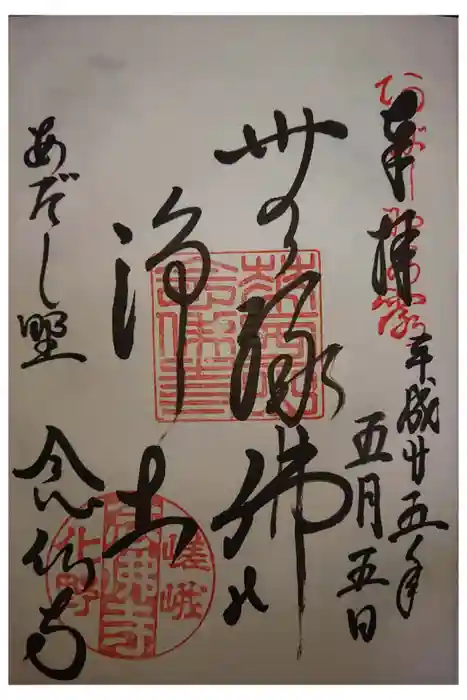 奉拝
平成廿五年
五月五日
無縁佛の
浄土
あだし野
念仏寺
嵯峨
念佛寺
化野